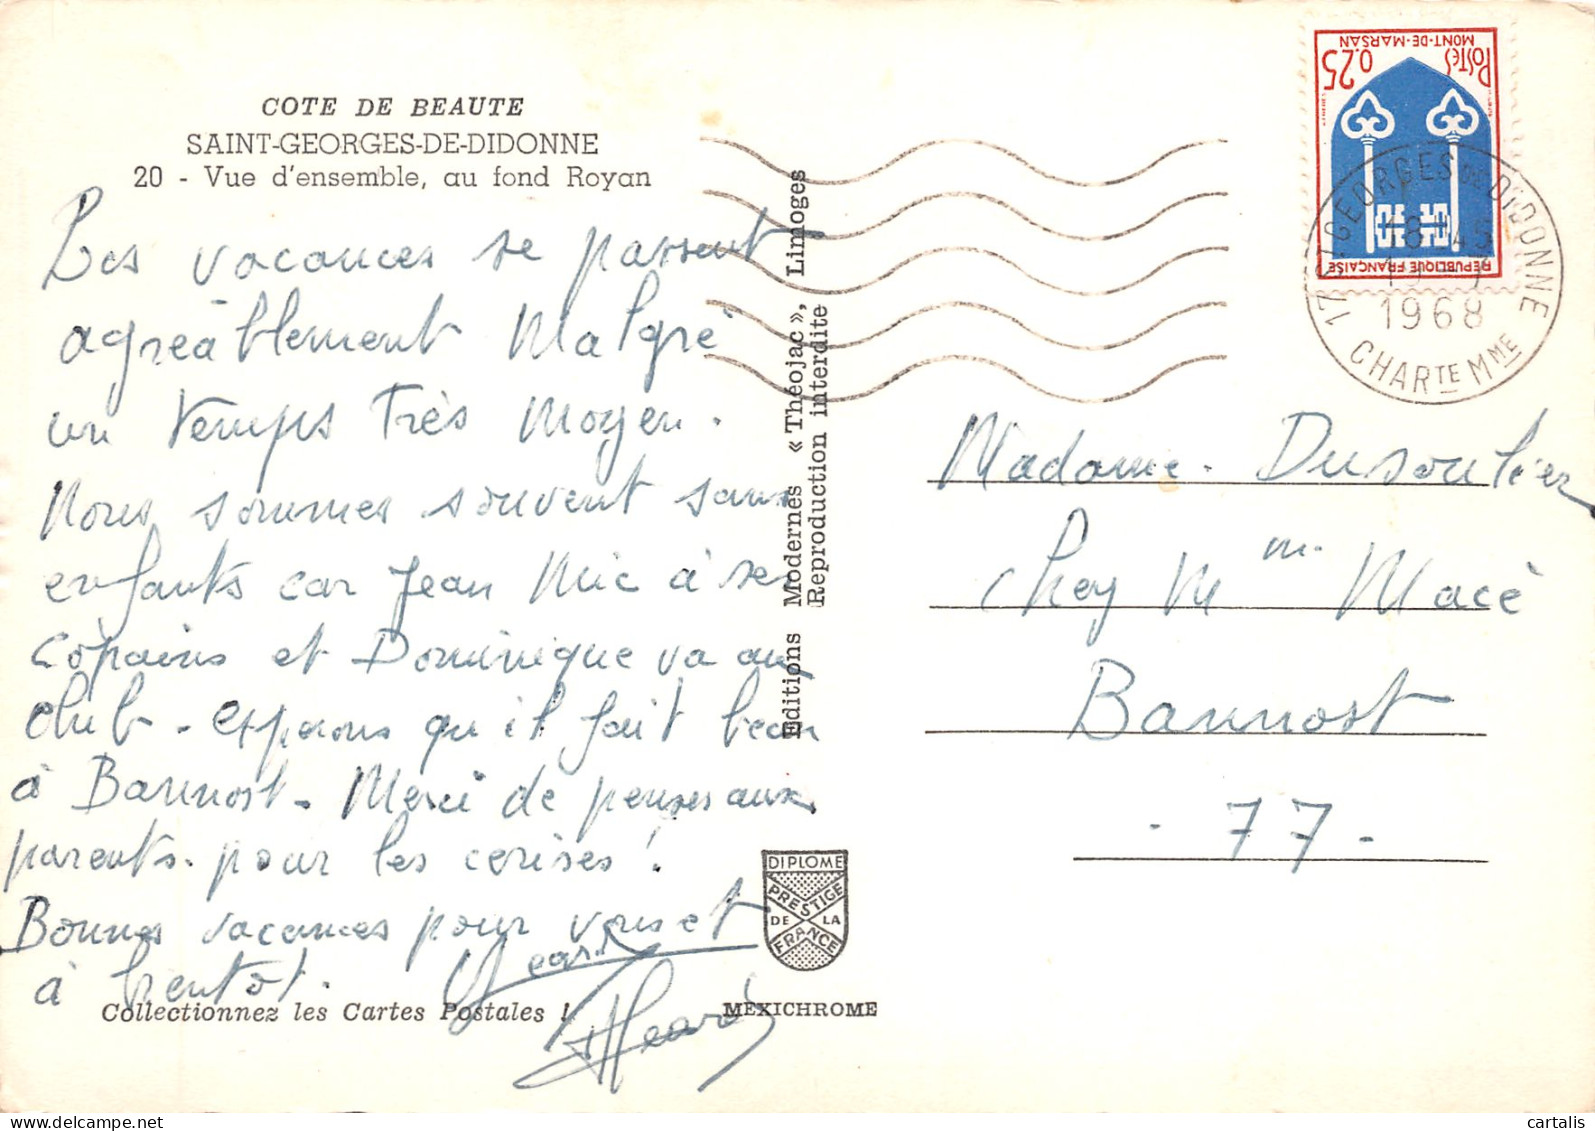 COTE DE BEAUTE
SAINT-GEORGES-DE-DIDONNE
20 - Vue d'ensemble, au fond Royan
Les vacances se passent
agréablement Malgré
un temps très moyen.
Nous sommes souvent sans
enfants car Jean Mic à ses
copains et Dominique va au
club - esperons qu'il fait beau
à Bannost - Merci de penser aux
parents - pour les cerises !
Bonnes vacances pour vous et
à bientot.
Jean
Collectionnez les Cartes Postales !
Editions Modernes « Théojac », Limoges
Reproduction interdite
DIPLOME
PRESTIGE
DE LA
FRANCE
MEXICHROME
POSTES
0,25
MONT-DE-MARSAN
REPUBLIQUE FRANÇAISE
17 ST GEORGES DE DIDONNE
1968
CHARTE MME
Madame Dusoulier
Chez Mme Macé
Bannost
- 77 -
cartalis
cartalis.delcampe.net